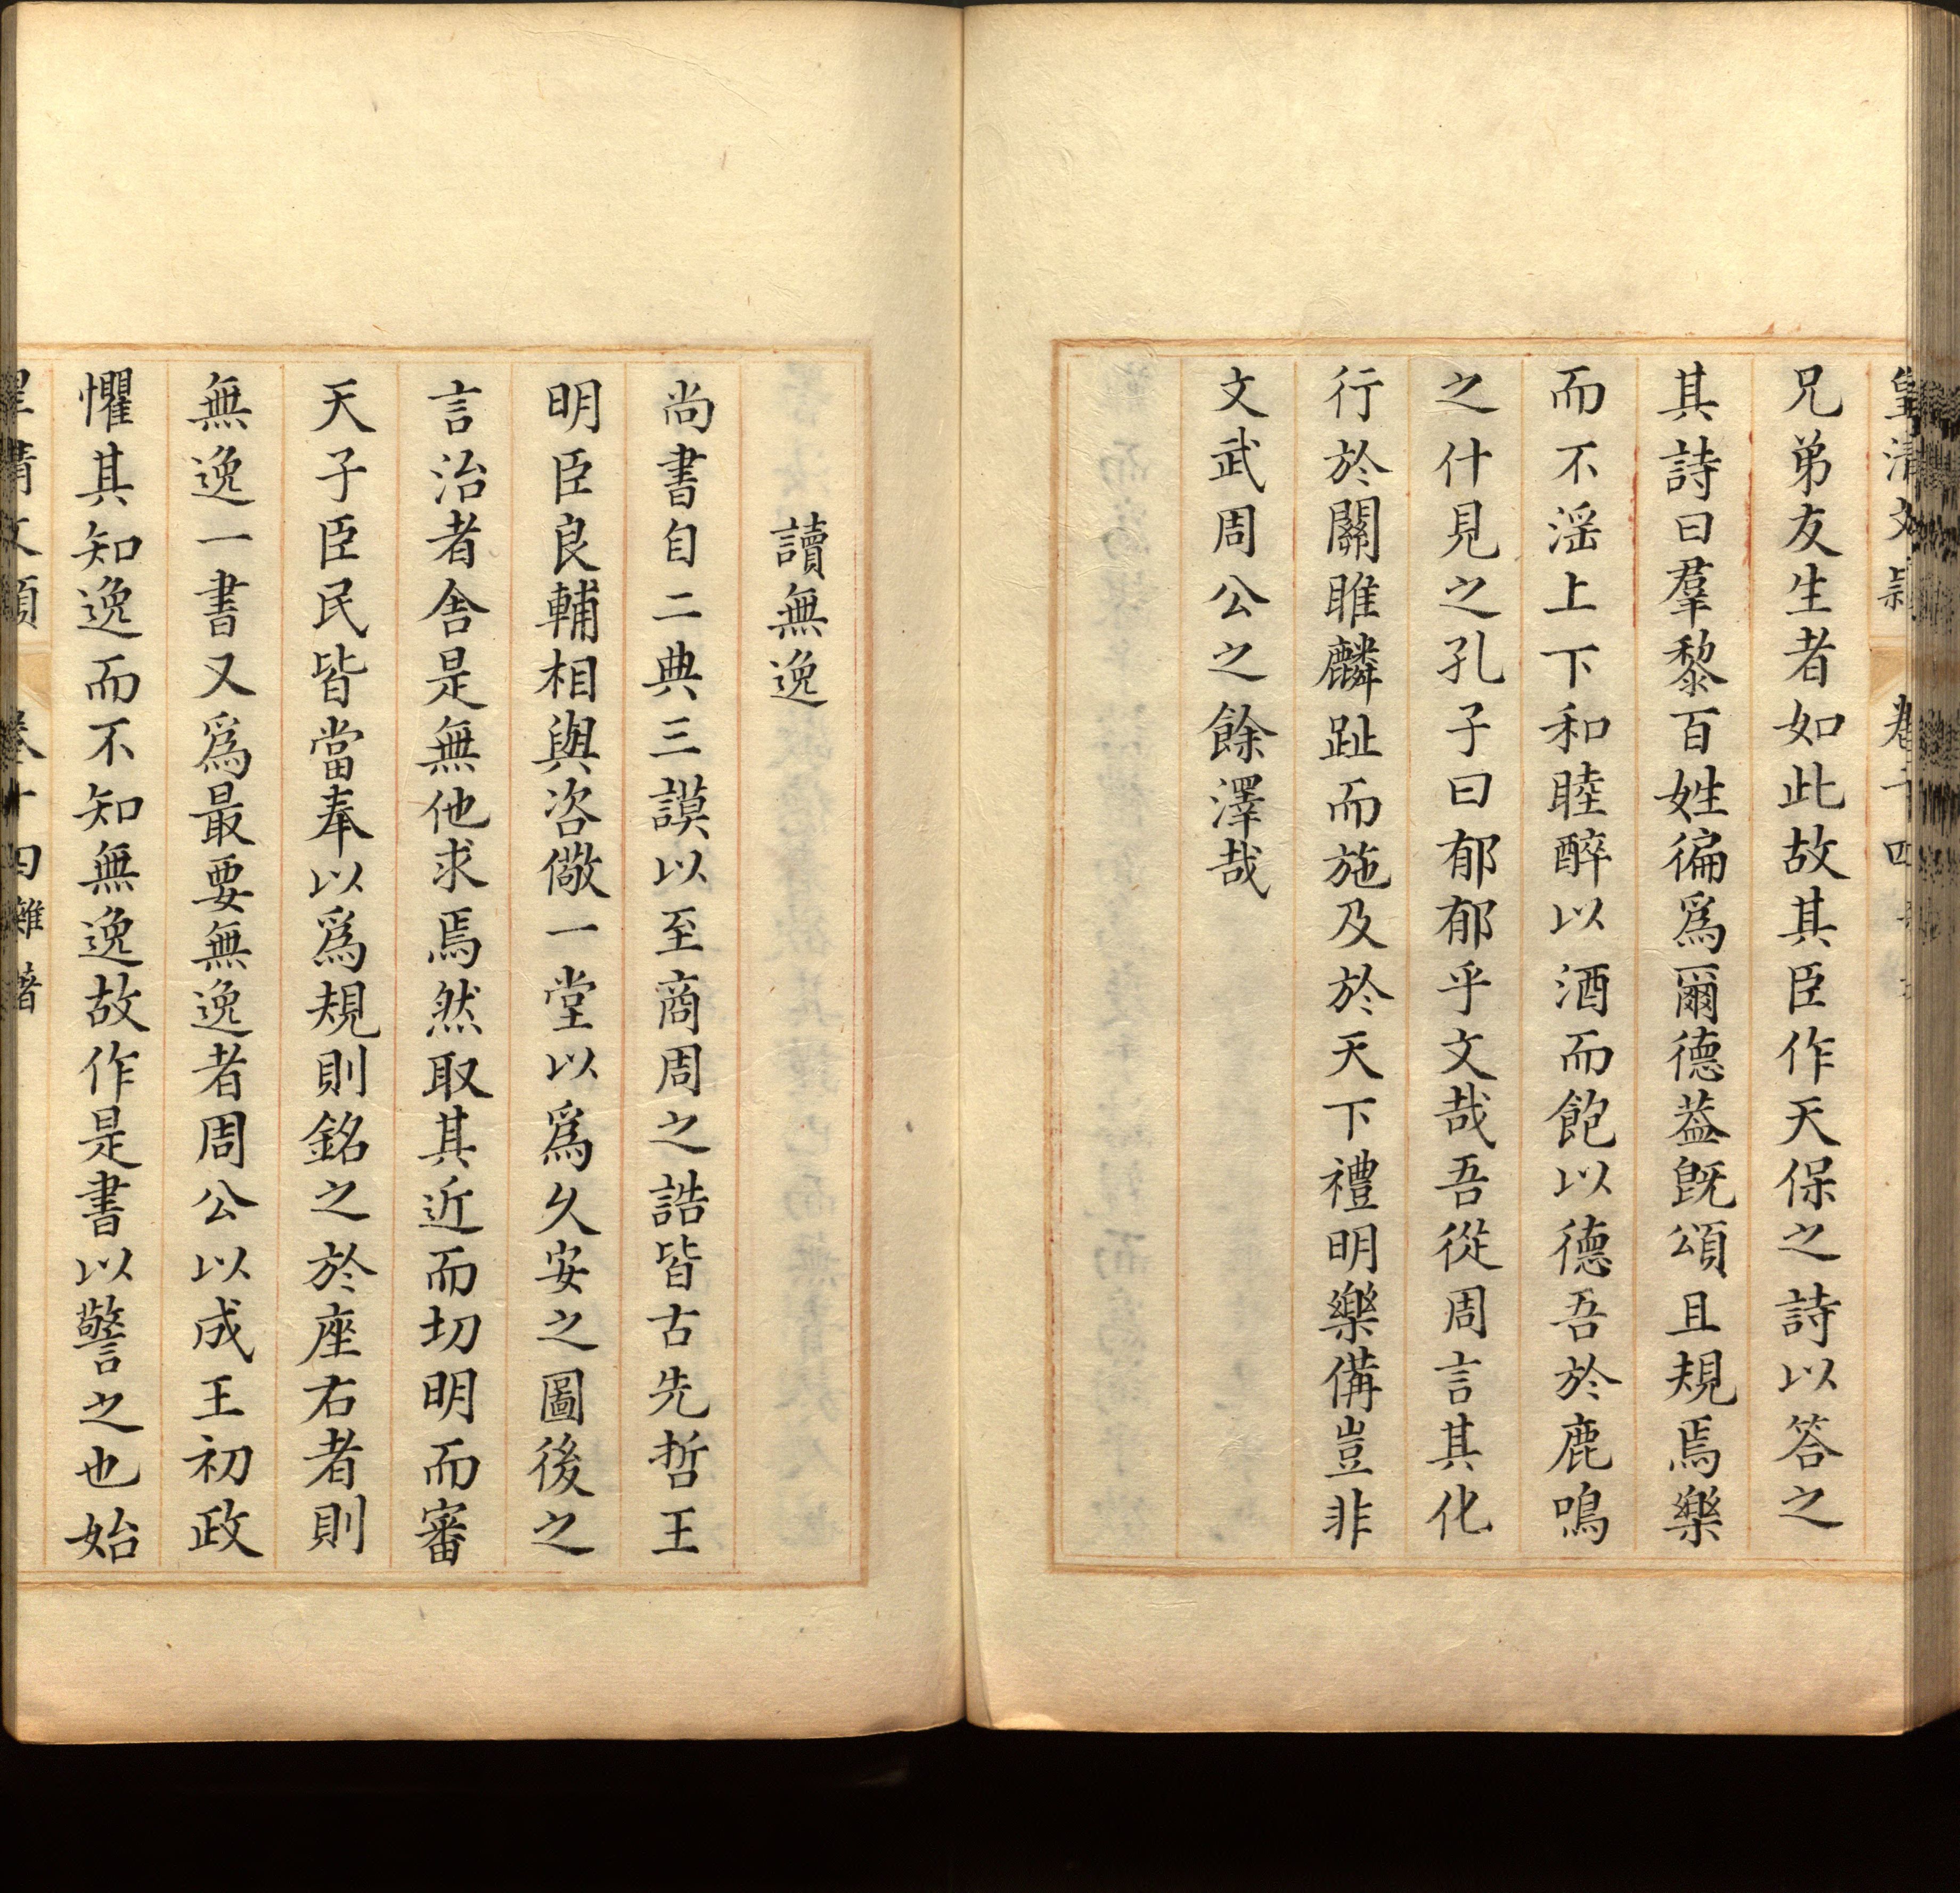 皇清文穎 卷十四
兄弟友生者如此故其臣作天保之詩以答之
其詩曰羣黎百姓徧爲爾德葢既頌且規焉樂
而不滛上下和睦醉以酒而飽以德吾於鹿鳴
之什見之孔子曰郁郁乎文哉吾從周言其化
行於關雎麟趾而施及於天下禮明樂備豈非
文武周公之餘澤哉
讀無逸
尚書自二典三謨以至商周之誥皆古先哲王
明臣良輔相與咨儆一堂以爲久安之圖後之
言治者舎是無他求焉然取其近而切明而審
天子臣民皆當奉以爲規則銘之於座右者則
無逸一書又爲最要無逸者周公以成王初政
懼其知逸而不知無逸故作是書以警之也始
皇清文穎 卷十四雜著